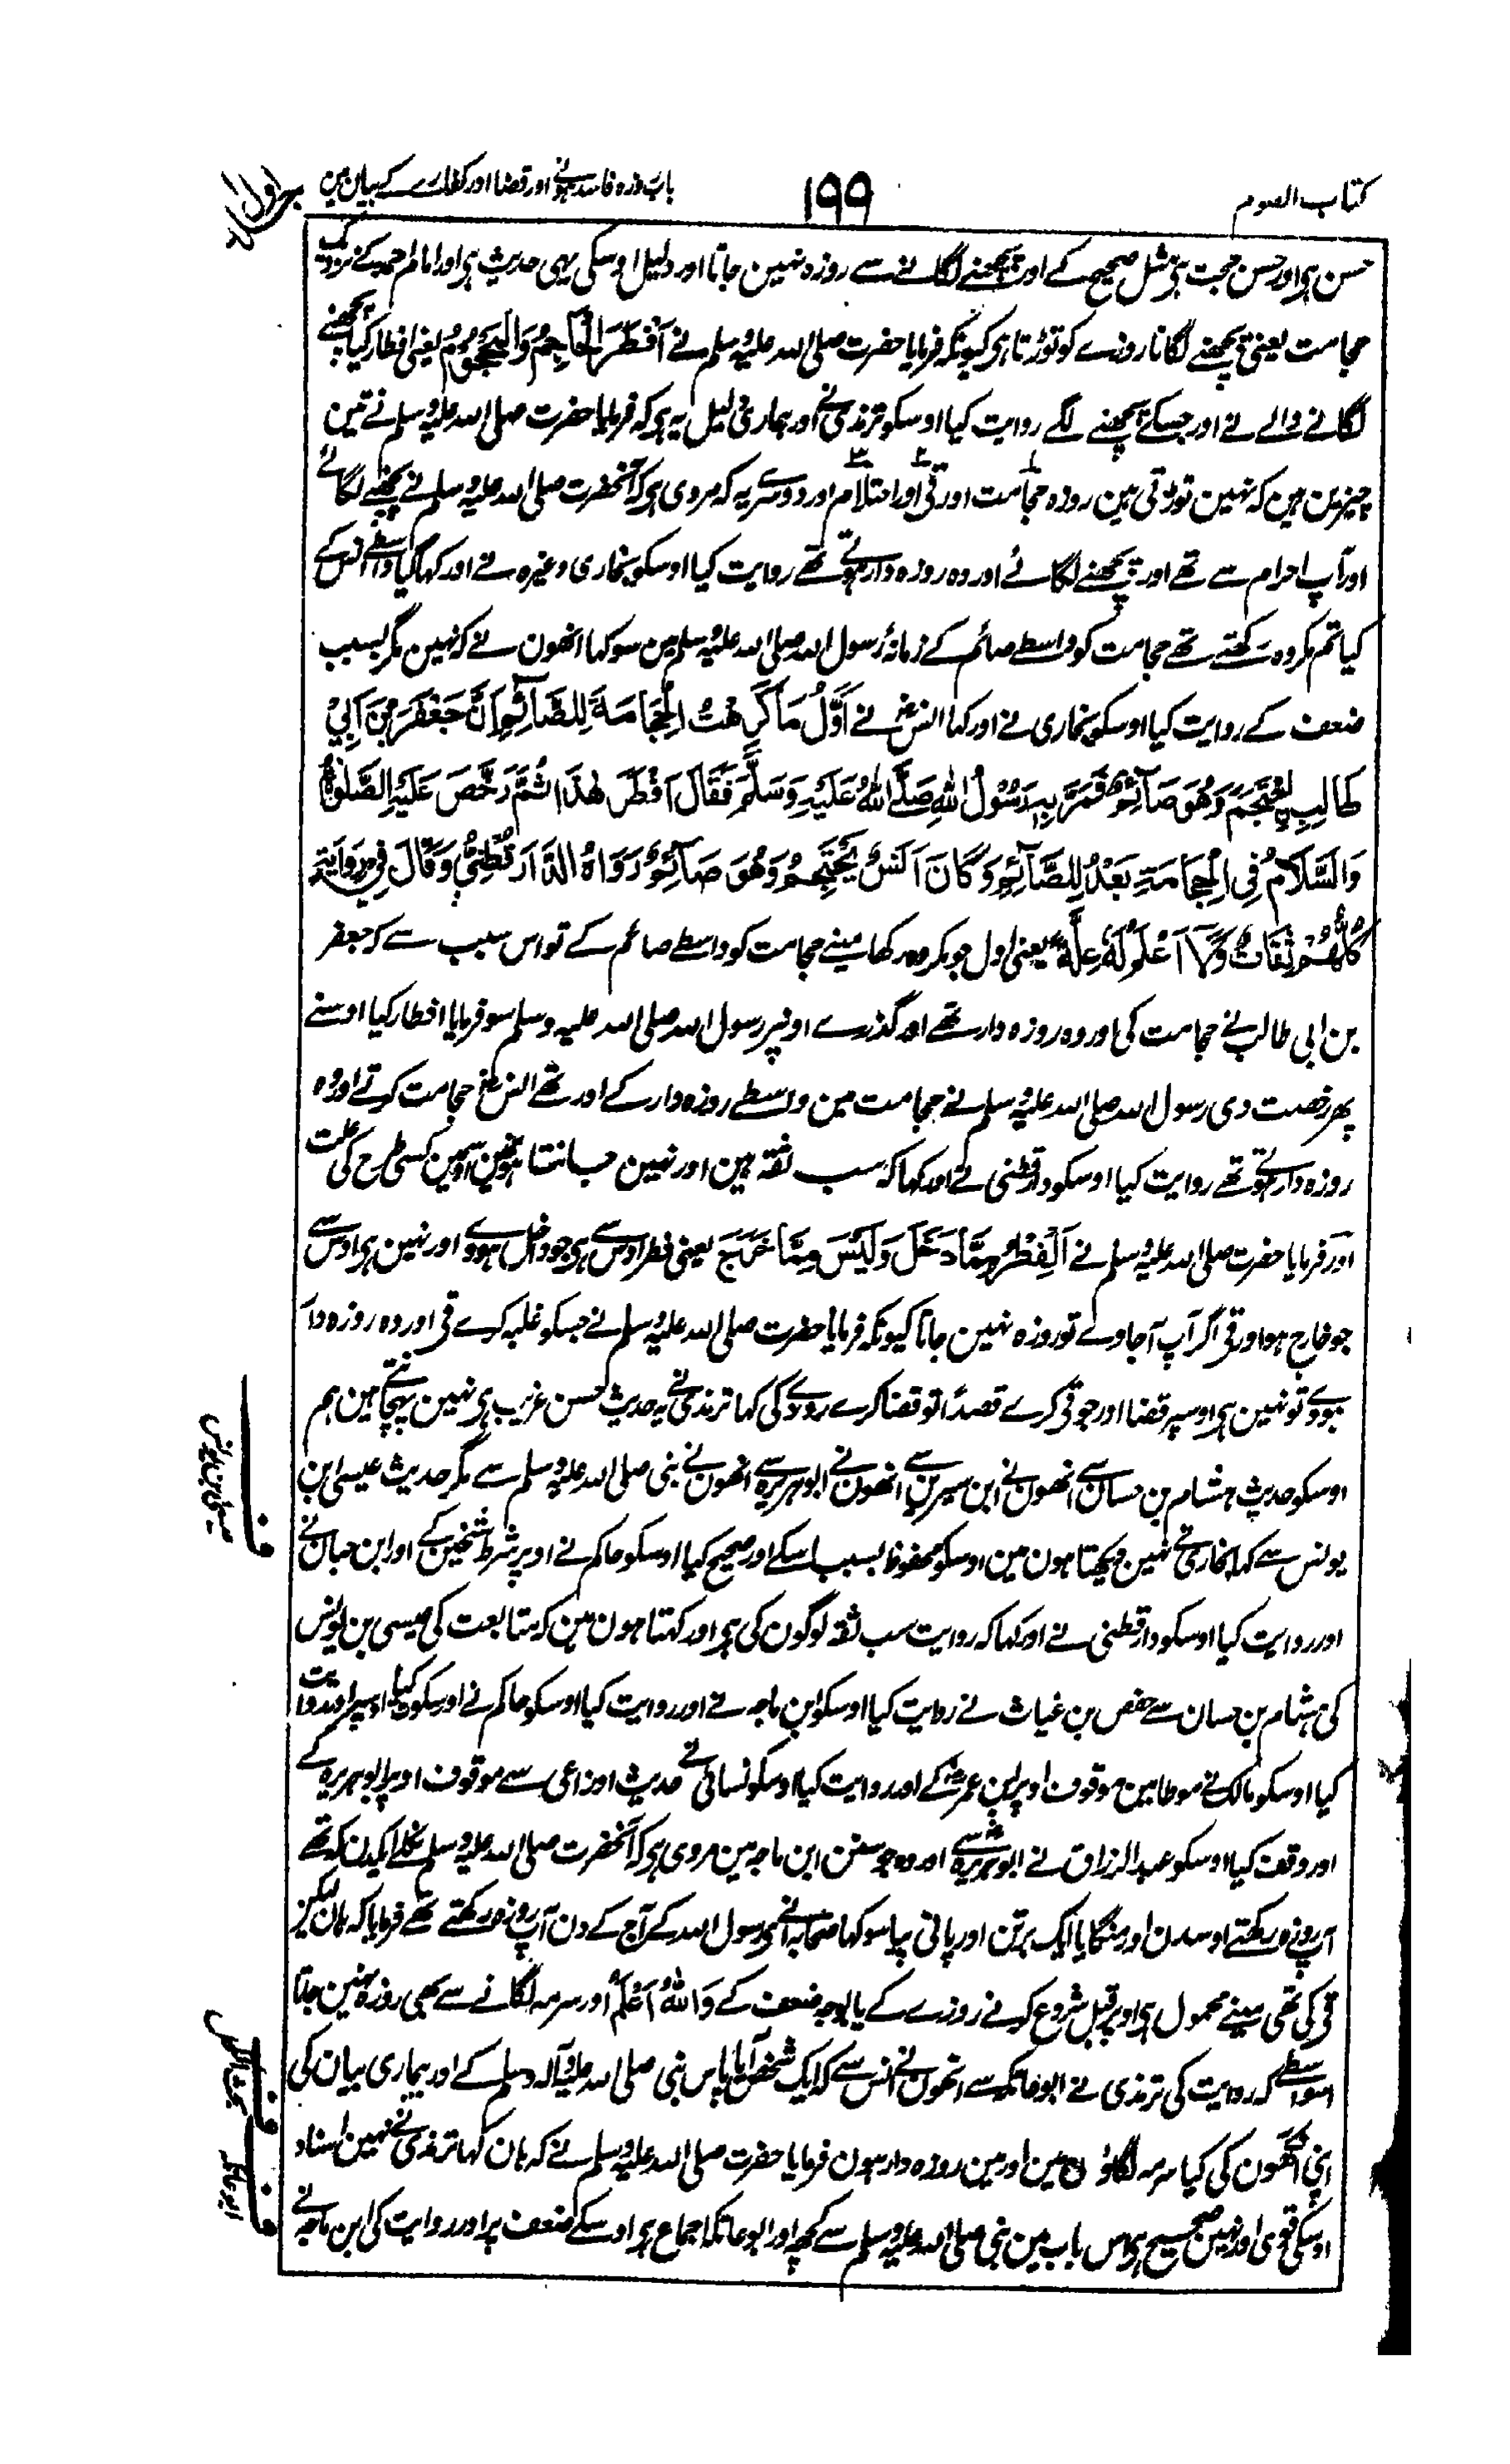 کتاب الصوم
۱۹۹
باب روزہ فاسد ہونے اور قضا اور کفارے کے بیان مین
جلد اول
حسن ہی اور حسن حجت ہی مثل صحیح کے اور پچھنے لگانے سے روزہ نہین جاتا اور دلیل اوسکی یہی حدیث ہی اور امام احمد کے نزدیک
حجامت یعنی پچھنے لگانا روزے کو توڑتا ہی کیونکہ فرمایا حضرت صلی اللہ علیہ وسلم نے اَفْطَرَ الْحَاجِمُ وَالْمَحْجُوْمُ یعنی افطار کیا پچھنے
لگانے والے نے اور جسکے پچھنے لگے روایت کیا اوسکو ترمذی نے اور ہماری دلیل یہ ہی کہ فرمایا حضرت صلی اللہ علیہ وسلم نے تین
چیزین ہین کہ نہین توڑتی ہین روزہ حجامت اور قی اور احتلام اور دوسرے یہ کہ مروی ہی کہ آنحضرت صلی اللہ علیہ وسلم نے پچھنے لگائے
اور آپ احرام سے تھے اور پچھنے لگائے اور وہ روزہ دار ہوتے تھے روایت کیا اوسکو بخاری وغیرہ نے اور کہا گیا واسطے انس کے
کیا تم مکروہ رکھتے تھے حجامت کو واسطے صائم کے زمانۂ رسول اللہ صلی اللہ علیہ وسلم مین سو کہا انھون نے کہ نہین مگر بسبب
ضعف کے روایت کیا اوسکو بخاری نے اور کہا انس نے اَوَّلُ مَا كَرِهْتُ الْحِجَامَةَ لِلصَّآئِمِ اَنَّ جَعْفَرَ بْنَ اَبِيْ
طَالِبٍ اِحْتَجَمَ وَهُوَ صَآئِمٌ فَمَرَّ بِهٖ رَسُوْلُ اللهِ صَلَّى اللهُ عَلَيْهِ وَسَلَّمَ فَقَالَ اَفْطَرَ هٰذَا ثُمَّ رَخَّصَ عَلَيْهِ الصَّلٰوةُ
وَالسَّلَامُ فِي الْحِجَامَةِ بَعْدُ لِلصَّآئِمِ وَكَانَ اَنَسٌ يَحْتَجِمُ وَهُوَ صَآئِمٌ رَوَاهُ الدَّارَقُطْنِيُّ وَقَالَ فِيْ رِوَايَتِهٖ
كُلُّهُمْ ثِقَاتٌ وَلَا اَعْلَمُ لَهٗ عِلَّةً یعنی اول جو مکروہ رکھا مینے حجامت کو واسطے صائم کے تو اس سبب سے کہ جعفر
بن ابی طالب نے حجامت کی اور وہ روزہ دار تھے اور گذرے اونپر رسول اللہ صلی اللہ علیہ وسلم سو فرمایا افطار کیا اوسنے
پھر رخصت دی رسول اللہ صلی اللہ علیہ وسلم نے حجامت مین واسطے روزہ دار کے اور تھے انس حجامت کرتے اور وہ
روزہ دار ہوتے تھے روایت کیا اوسکو دارقطنی نے اور کہا کہ سب ثقہ ہین اور نہین جانتا ہون مین اوسمین کسی طرح کی علت
اور فرمایا حضرت صلی اللہ علیہ وسلم نے اَلْفِطْرُ مِمَّا دَخَلَ وَلَيْسَ مِمَّا خَرَجَ یعنی فطر اوس سے ہی جو داخل ہووے اور نہین ہی اوس سے
جو خارج ہو اور قی اگر آپ آجاوے تو روزہ نہین جاتا کیونکہ فرمایا حضرت صلی اللہ علیہ وسلم نے جسکو غلبہ کرے قی اور وہ روزہ دار
ہووے تو نہین ہی اوسپر قضا اور جو قی کرے قصداً تو قضا کرے روزے کی کہا ترمذی نے یہ حدیث حسن غریب ہی نہین پہچانتے ہین ہم
اوسکو حدیث ہشام بن حسان سے انھون نے ابن سیرین سے انھون نے ابو ہریرہ سے انھون نے نبی صلی اللہ علیہ وسلم سے مگر حدیث عیسی ابن
یونس سے کہا بخاری نے نہین دیکھتا ہون مین اوسکو محفوظ بسبب اسکے اور صحیح کیا اوسکو حاکم نے اوپر شرط شیخین کے اور ابن حبان نے
اور روایت کیا اوسکو دارقطنی نے اور کہا کہ روایت سب ثقہ لوگون کی ہی اور کہتا ہون مین کہ متابعت کی عیسی بن یونس
کی ہشام بن حسان سے حفص بن غیاث نے روایت کیا اوسکو ابن ماجہ نے اور روایت کیا اوسکو حاکم نے اور سکوت کیا اوسپر اور روایت
کیا اوسکو مالک نے موطا مین موقوف اوپر ابن عمر کے اور روایت کیا اوسکو نسائی نے حدیث اوزاعی سے موقوف اوپر ابو ہریرہ کے
اور وقف کیا اوسکو عبد الرزاق نے ابو ہریرہ سے اور وہ جو سنن ابن ماجہ مین مروی ہی کہ آنحضرت صلی اللہ علیہ وسلم نکلے ایکدن کہ تھے
آپ روزہ رکھتے اوسدن اور منگایا ایک برتن اور پانی پیا سو کہا صحابہ نے ای رسول اللہ کے آج کے دن آپ روزہ رکھتے تھے فرمایا کہ ہان لیکن
قی کی تھی مینے محمول ہی اوپر قبل شروع کرنے روزے کے یا بوجہ ضعف کے وَاللهُ اَعْلَمُ اور سرمہ لگانے سے بھی روزہ نہین جاتا
اسواسطے کہ روایت کی ترمذی نے ابو عاتکہ سے انھون نے انس سے کہ ایک شخص آیا پاس نبی صلی اللہ علیہ وآلہ وسلم کے اور بیماری بیان کی
اپنی آنکھون کی کیا سرمہ لگاؤن مین اور مین روزہ دار ہون فرمایا حضرت صلی اللہ علیہ وسلم نے کہ ہان کہا ترمذی نے نہین اسناد
اوسکی قوی اور نہین صحیح ہی اس باب مین نبی صلی اللہ علیہ وسلم سے کچھ اور ابو عاتکہ اجماع ہی اوسکے ضعف پر اور روایت کی ابن ماجہ نے
عیسی بن یونس
ابو عاتکہ